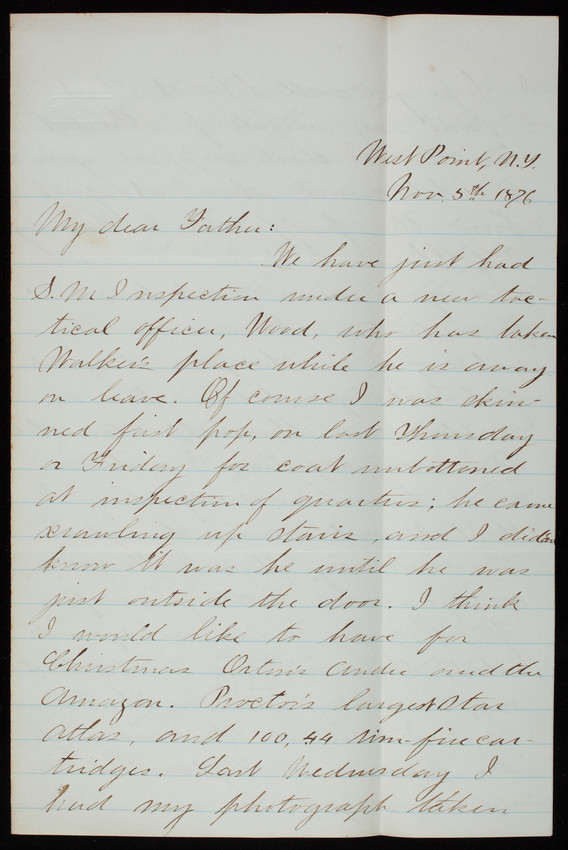 West Point, N.Y.
Nov. 5th 1876
My dear Father:
We have just had
S.M Inspection under a new tac-
tical officer, Wood, who has taken
Walker's place while he is away
on leave. Of course I was skin-
ned first pop, on last Thursday
or Friday for coat unbottoned
at inspection of quarters; he came
crawling up stairs, and I didn
know it was he until he was
just outside the door. I think
I would like to have for
Christmas Orton's Andes and the
Amazon. Proctor's largest Star
Atlas, and 100, 44 rim-fire car-
tridges. Last Wednesday I
had my photograph taken